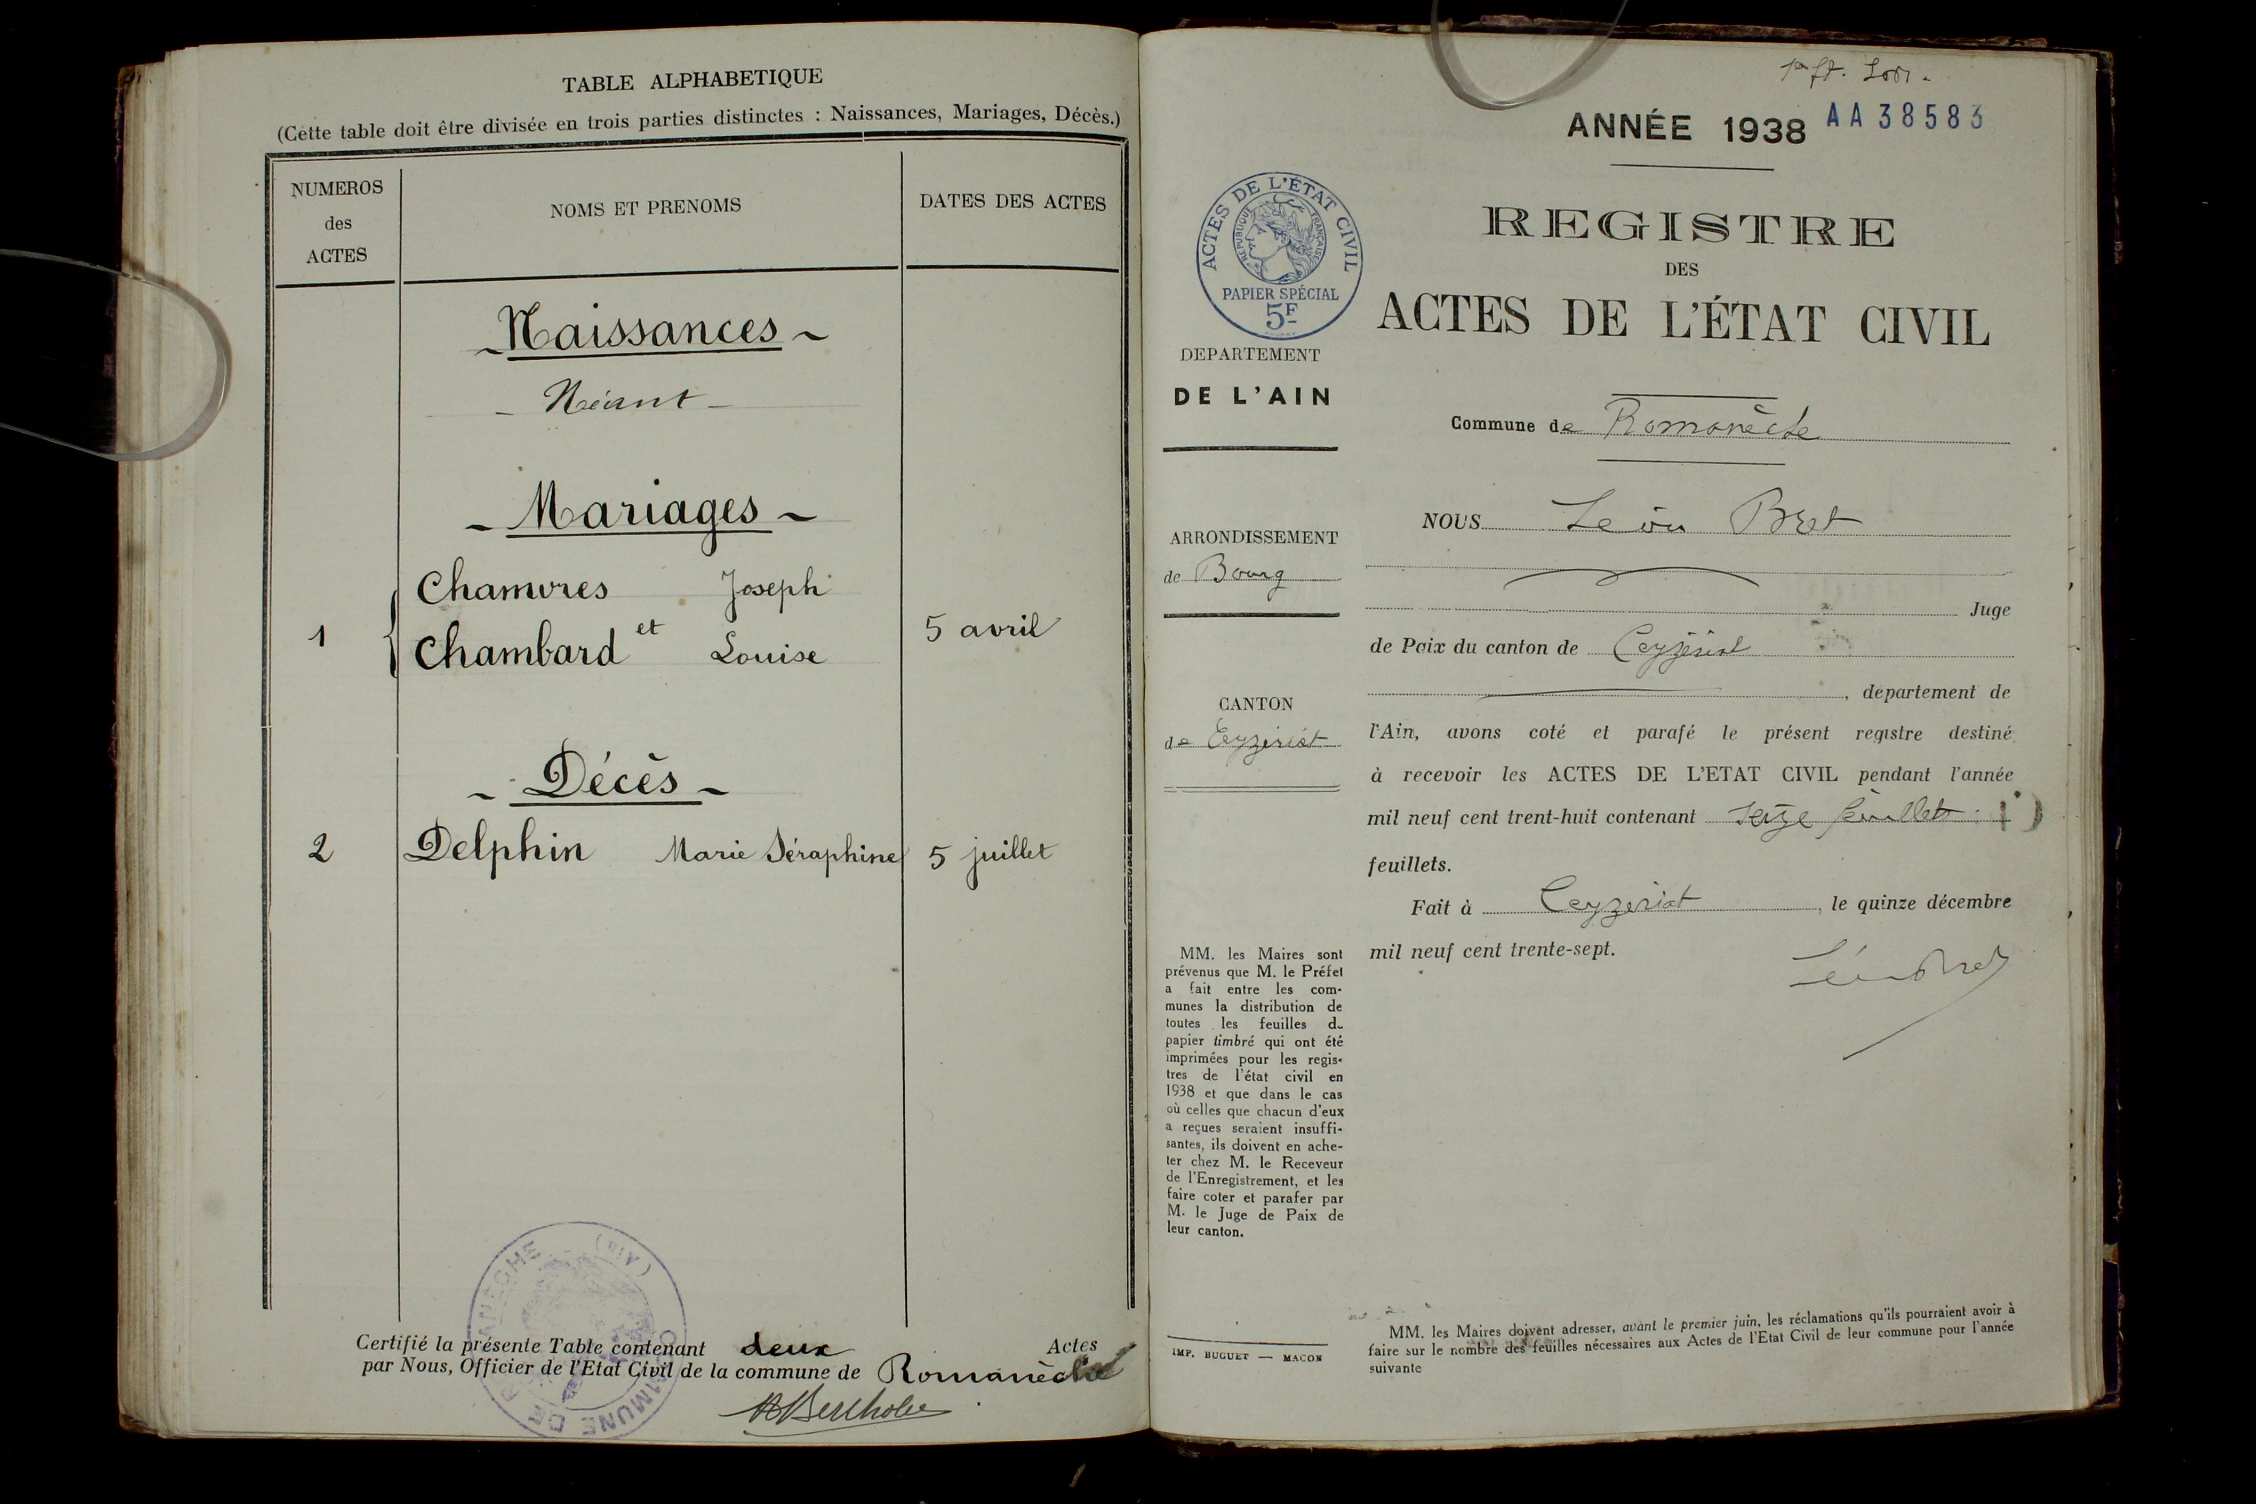 TABLE ALPHABETIQUE
(Cette table doit être divisée en trois parties distinctes : Naissances, Mariages, Décès.)
NUMEROS
des
ACTES
NOMS ET PRENOMS
DATES DES ACTES
- Naissances -
- Néant -
- Mariages -
Chamvres Joseph
1 et 5 avril
Chambard Louise
- Décès -
2 Delphin Marie Séraphine 5 juillet
Certifié la présente Table contenant deux Actes
par Nous, Officier de l'Etat Civil de la commune de Romanèche
COMMUNE DE ROMANECHE (AIN)
ANNÉE 1938 AA 38583
ACTES DE L'ÉTAT CIVIL
RÉPUBLIQUE FRANÇAISE
PAPIER SPÉCIAL
5F
REGISTRE
DES
ACTES DE L'ÉTAT CIVIL
DEPARTEMENT
DE L'AIN
ARRONDISSEMENT
de Bourg
CANTON
de Ceyzériat
MM. les Maires sont
prévenus que M. le Préfet
a fait entre les com-
munes la distribution de
toutes les feuilles de
papier timbré qui ont été
imprimées pour les regis-
tres de l'état civil en
1938 et que dans le cas
où celles que chacun d'eux
a reçues seraient insuffi-
santes, ils doivent en ache-
ter chez M. le Receveur
de l'Enregistrement, et les
faire coter et parafer par
M. le Juge de Paix de
leur canton.
IMP. BUGUET — MACON
Commune de Romanèche
NOUS Léon Bret
Juge
de Paix du canton de Ceyzériat
, département de
l'Ain, avons coté et parafé le présent registre destiné
à recevoir les ACTES DE L'ETAT CIVIL pendant l'année
mil neuf cent trent-huit contenant seize feuillets
feuillets.
Fait à Ceyzeriat, le quinze décembre
mil neuf cent trente-sept.
MM. les Maires doivent adresser, avant le premier juin, les réclamations qu'ils pourraient avoir à
faire sur le nombre des feuilles nécessaires aux Actes de l'Etat Civil de leur commune pour l'année
suivante